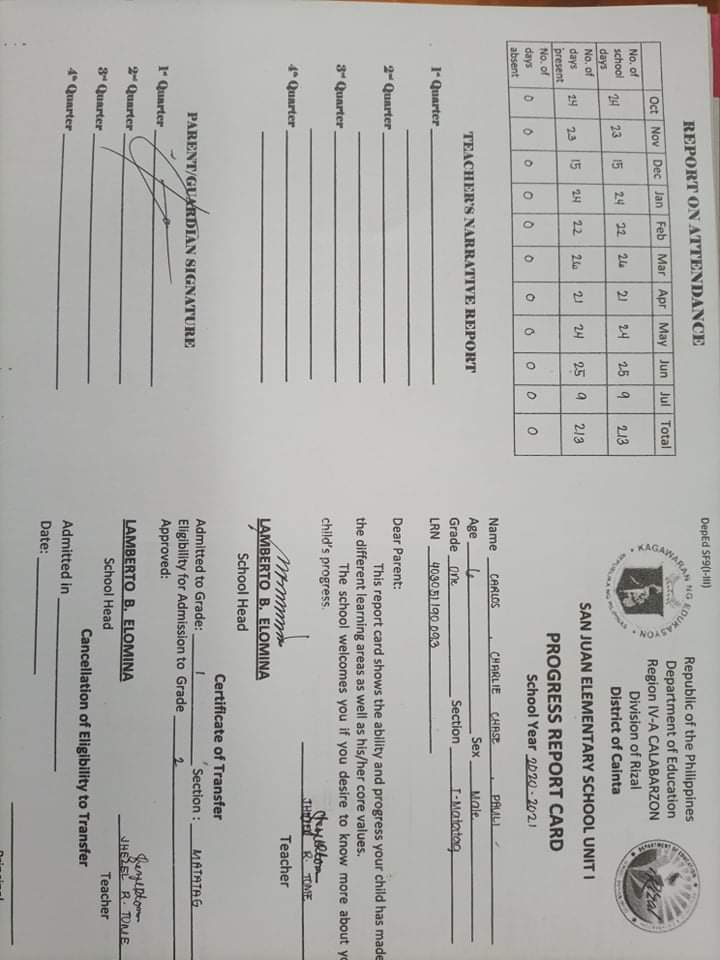 REPORT ON ATTENDANCE
Oct Nov Dec Jan Feb Mar Apr May Jun Jul Total
No. of school days 24 23 15 24 22 26 21 24 25 9 213
No. of days present 24 23 15 24 22 26 21 24 25 9 213
No. of days absent 0 0 0 0 0 0 0 0 0 0 0
TEACHER'S NARRATIVE REPORT
1st Quarter
2nd Quarter
3rd Quarter
4th Quarter
PARENT/GUARDIAN SIGNATURE
1st Quarter
2nd Quarter
3rd Quarter
4th Quarter
DepEd SF9(I-III)
KAGAWARAN NG EDUKASYON
Republic of the Philippines
Department of Education
Region IV-A CALABARZON
Division of Rizal
District of Cainta
DEPARTMENT OF EDUCATION
Rizal
SAN JUAN ELEMENTARY SCHOOL UNIT I
PROGRESS REPORT CARD
School Year 2020-2021
Name CARLOS, CHARLIE CHASE, PAULI
Age 6 Sex Male
Grade One Section I-Matatag
LRN 403051190093
Dear Parent:
This report card shows the ability and progress your child has made
the different learning areas as well as his/her core values.
The school welcomes you if you desire to know more about
child's progress.
JHEZEL R. TUNE
LAMBERTO B. ELOMINA Teacher
School Head
Certificate of Transfer
Admitted to Grade: 1 Section: MATATAG
Eligibility for Admission to Grade 2
Approved:
JHEZEL R. TUNE
LAMBERTO B. ELOMINA Teacher
School Head
Cancellation of Eligibility to Transfer
Admitted in
Date:
Principal